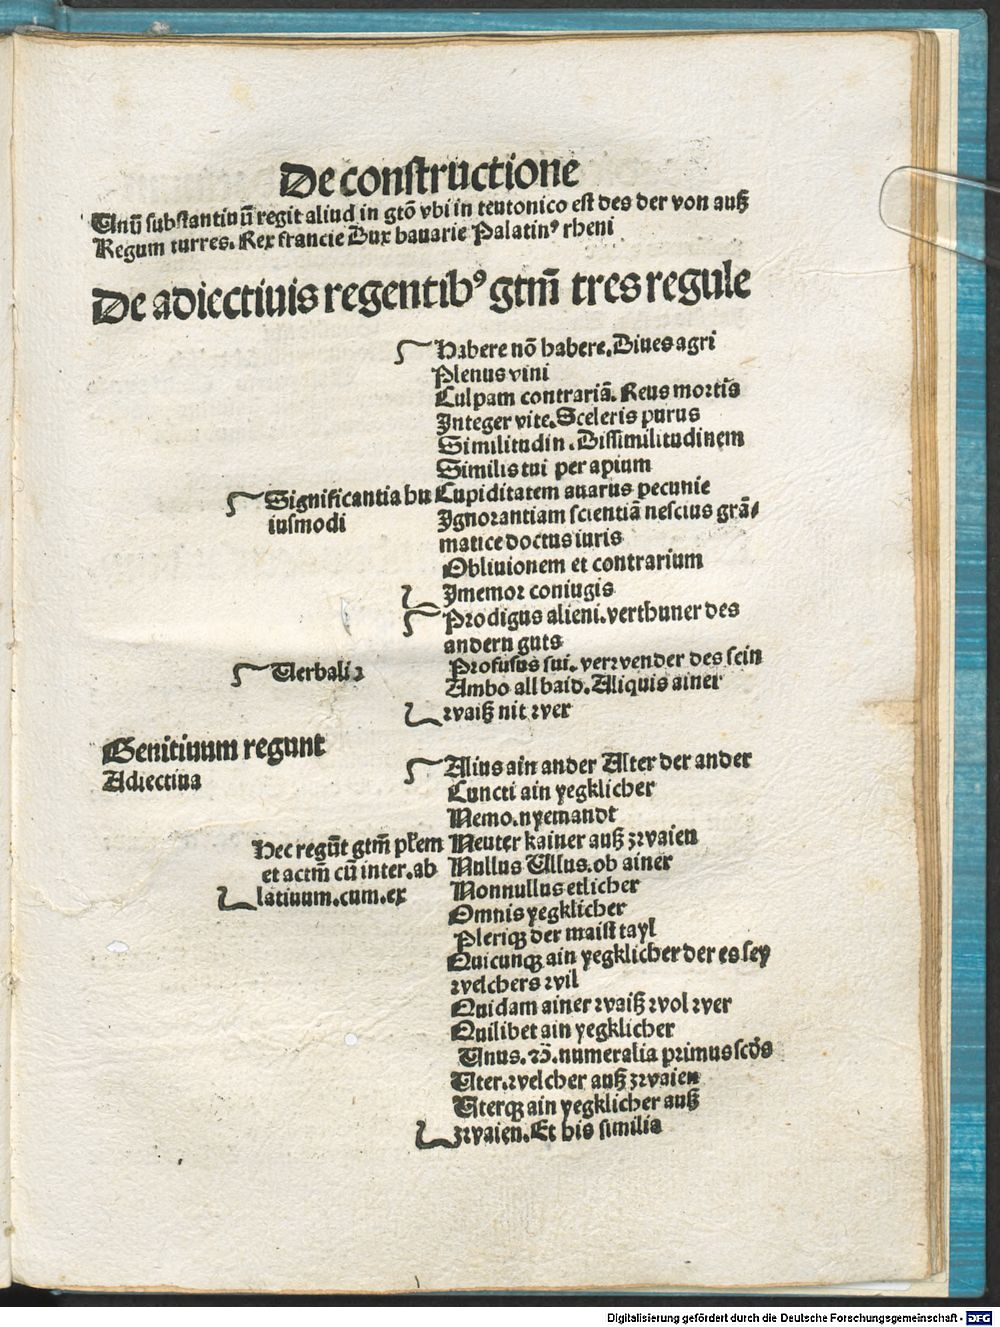 De constructione
Unū substantiuū regit aliud in gtō vbi in teutonico est des der von auß
Regum turres. Rex francie Dux bavarie Palatinꝰ rheni
De adiectiuis regentibꝰ gtm̄ tres regule
Habere nō habere. Diues agri
Plenus vini
Culpam contrariā. Reus mortis
Integer vite. Sceleris purus
Similitudin. Dissimilitudinem
Similis tui per apium
Significantia hu
iusmodi
Cupiditatem auarus pecunie
Ignorantiam scientiā nescius grā⸗
matice doctus iuris
Obliuionem et contrarium
Imemor coniugis
Prodigus alieni. verthuner des
andern guts
Verbalia
Profusus sui. verzvender des sein
Ambo all baid. Aliquis ainer
waiß nit wer
Genitiuum regunt
Adiectiua
Alius ain ander Alter der ander
Cuncti ain yegklicher
Nemo. nyemandt
Hec regūt gtm̄ pꝉem
et actm̄ cū inter. ab
latiuum. cum. ex
Neuter kainer auß zwaien
Nullus Ullus. ob ainer
Nonnullus etlicher
Omnis yegklicher
Pleriqꝫ der maist tayl
Quicunqꝫ ain yegklicher der es sey
welchers wil
Quidam ainer waiß wol wer
Quilibet ain yegklicher
Unus. ꝛc̄. numeralia primus scd̄s
Uter. welcher auß zwaien
Uterqꝫ ain yegklicher auß
zwaien. Et his similia
Digitalisierung gefördert durch die Deutsche Forschungsgemeinschaft - DFG